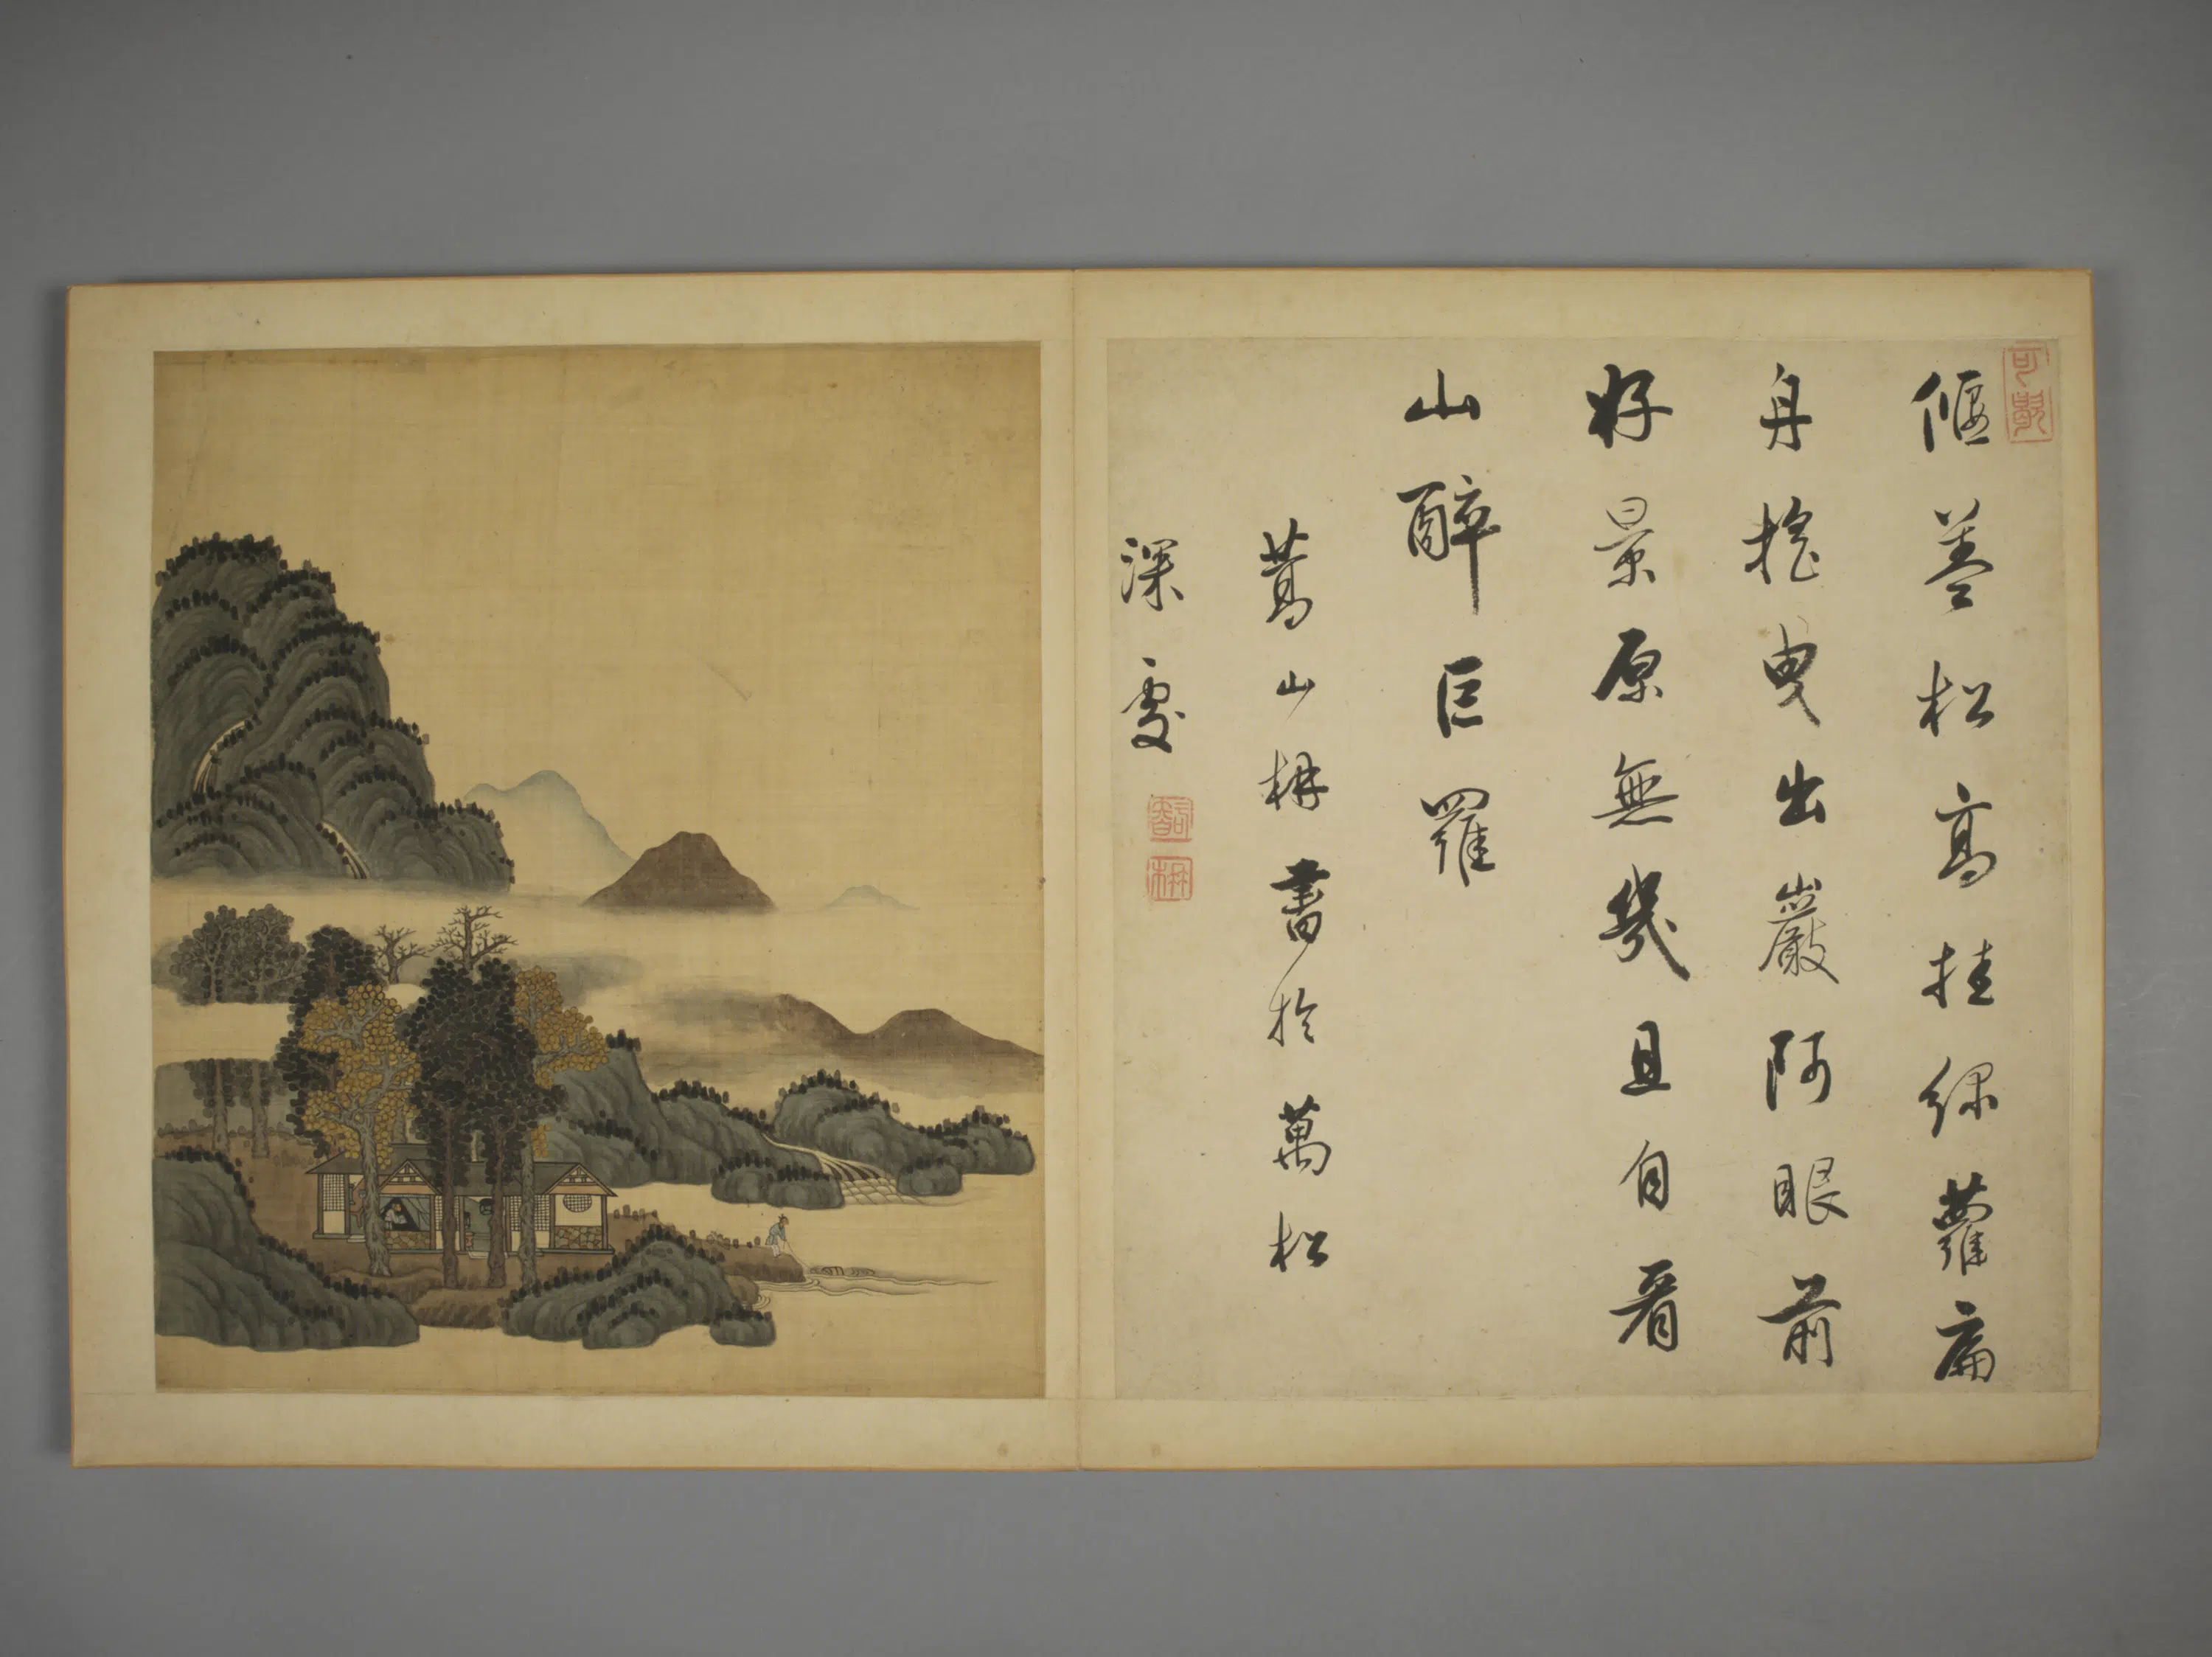 偃蓋松高挂綠蘿扁
舟搖曳出巖阿眼前
好景原無幾且自看
山醉叵羅
葛山枏書於萬松
深處